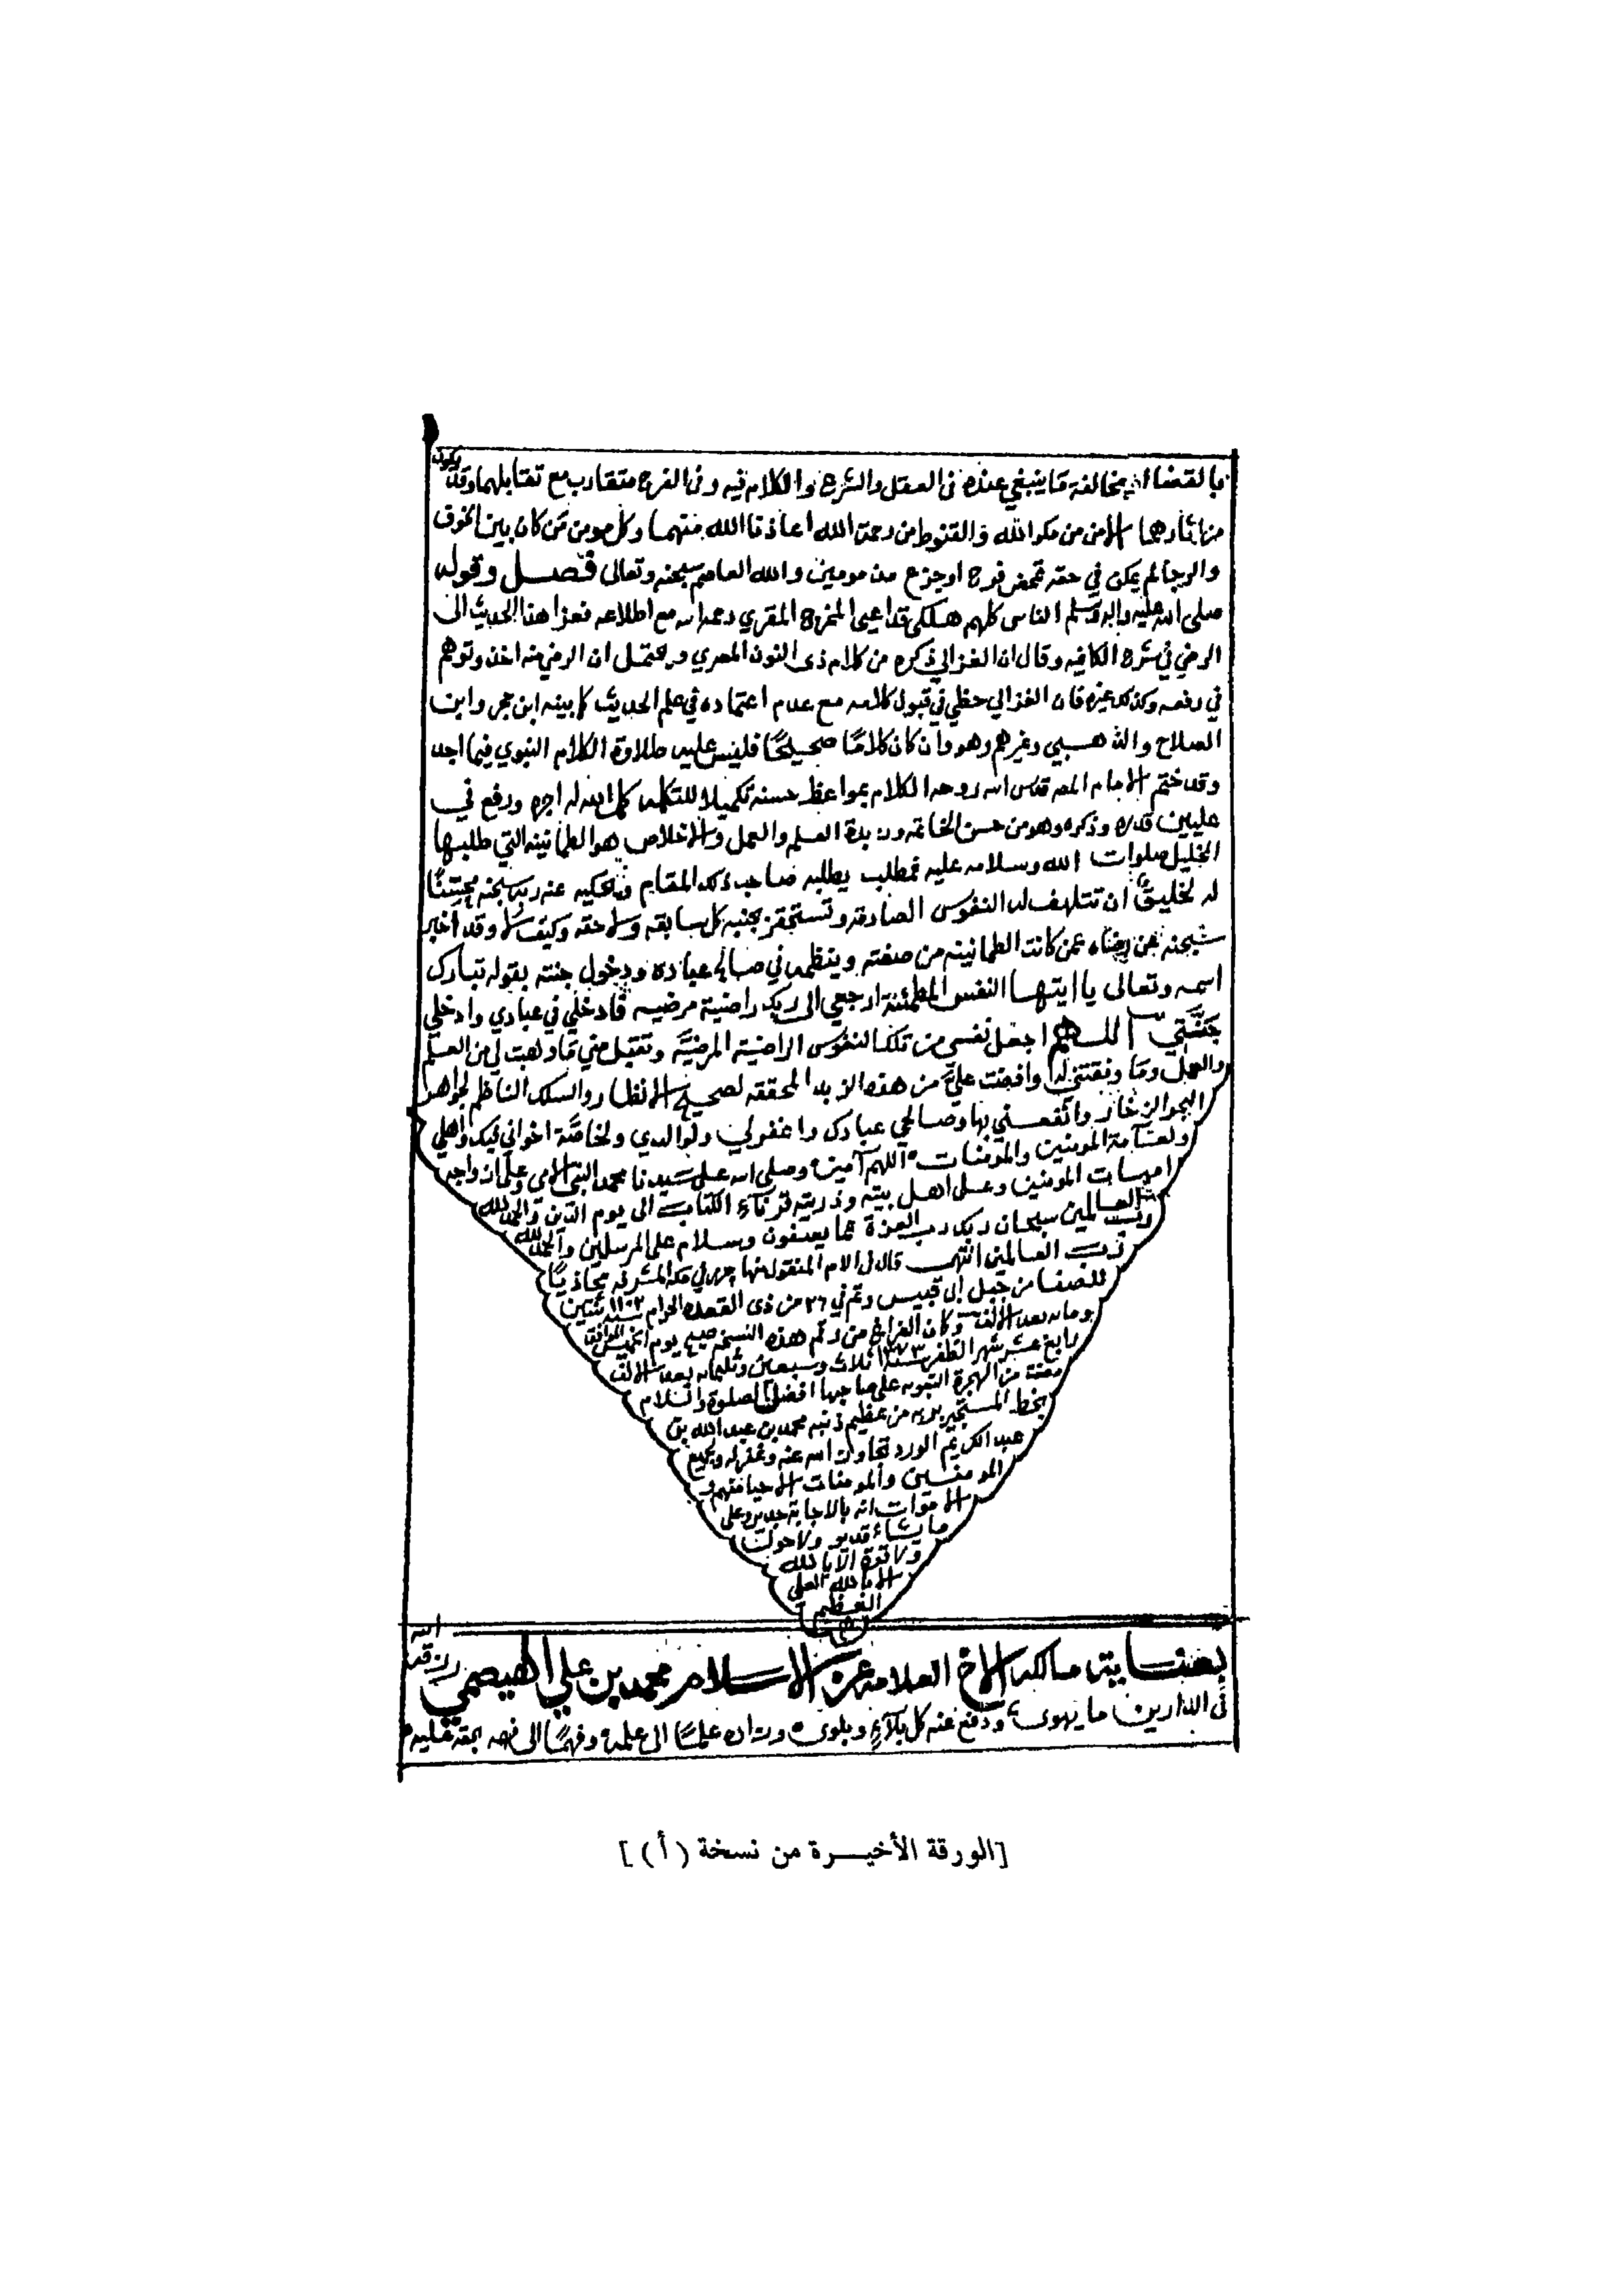 بالقضا مخالفة ما ينبغي عنده في العقل والشرع والكلام فيه وفي الفرح متقارب مع تقابلهما وقد يكون
من اثارهما الامن من مكر الله والقنوط من رحمة الله اعاذنا الله منهما وكل مومن من كان بين الخوف
والرجا لم يمكن في حقه تمحض فرح او جزع من مومين والله العاصم سبحنه وتعالى فصل وقوله
صلى الله عليه واله وسلم الناس كلهم هلكى قد اعيى المخرج المقري رحمه الله مع اطلاعه فعزا هذا الحديث الى
الرضي في شرح الكافيه وقال ان الغزالي ذكره من كلام ذى النون المصري ويحتمل ان الرضي منه اخذ وتوهم
في رفعه وكذلك غيره فان الغزالي حظي في قبول كلامه مع عدم اعتماده في علم الحديث كما بينه ابن حجر وابن
الصلاح والذهبي وغيرهم وهو وان كان كلامًا صحيحًا فليس عليه طلاوة الكلام النبوي فيما اجد
وقد ختم الامام المص قدس الله روحه الكلام بمواعظ حسنه تكميلا للتكلمه كمل الله له اجره ورفع في
عليين قدره وذكره وهو من حسن الخاتمه وزبدة العلم والعمل والاخلاص هو الطمانينه التي طلبها
الخليل صلوات الله وسلامه عليه فمطلب يطلبه صاحب ذلك المقام ويحكيه عنه ربه سبحنه
له لخليق ان تتلهف له النفوس الصادقه وتستحقر بجنبه كل سابقه ولاحقه وكيف لا وقد اخبر
سبحنه عن رضاه عمن كانت الطمانينه من صفته وينظمه في صالح عباده ودخول جنته بقوله تبارك
اسمه وتعالى يا ايتها النفس المطمئنة ارجعي الى ربك راضية مرضيه فادخلي في عبادي وادخلي
جنتي اللهم اجعل نفسي من تلك النفوس الراضية المرضيّه وتقبل مني ما وهبت لي من العلم
والعمل وما وفقتني له وافضت عليّ من هذه الزبد المحققه لصحيح الانظار والسلك الناظم لجواهر
البحر الزخار وانفعني بها وصالحي عبادك واغفر لي ولوالدي ولخاصّة اخواني فيك واهلي
ولعامة المومنين والمومنات اللهم آمين وصلى الله على سيدنا محمد النبي الامي وعلى ازواجه
امهات المومنين وعلى اهل بيته وذريته قرنآء الكتاب الى يوم الدين والحمد لله
رب العالمين سبحان ربك رب العزة عما يصفون وسلام على المرسلين والحمد لله
رب العالمين انتهى قال في الام المنقول منها حرر في مكه المشرفه محاذيًا
للصفا من جبل ابي قبيس وتم في ٢٦ من ذى القعدة الحرام سنه ١١٠٢ ثنتين
ومائه بعد الالف وكان الفراغ من رقم هذه النسخه صبح يوم الخميس الموافق
رابع عشر شهر الظفر سنة ١٣٧٣ ثلاث وسبعين وثلثمائه بعد الالف
مضت من الهجرة النبويه على صاحبها افضل الصلوة والسلام
بخط المستجير بربه من عظيم ذنبه محمد بن عبد الله بن
عبد الكريم الورد تجاوز الله عنه وغفر له ولجميع
المومنين والمومنات الاحيا منهم و
الاموات انه بالاجابة جدير وعلى
ما يشاء قدير ولا حول
ولا قوة الا بالله
الا بالله العلي
العظيم
بعناية مالكه الاخ العلامه عز الاسلام محمد بن علي الهيصمي رزقه الله
في الدارين ما يهوى ودفع عنه كل بلآءٍ وبلوى وزاده علمًا الى علمه وفهمًا الى فهمه
[الورقة الأخيرة من نسخة (أ)]